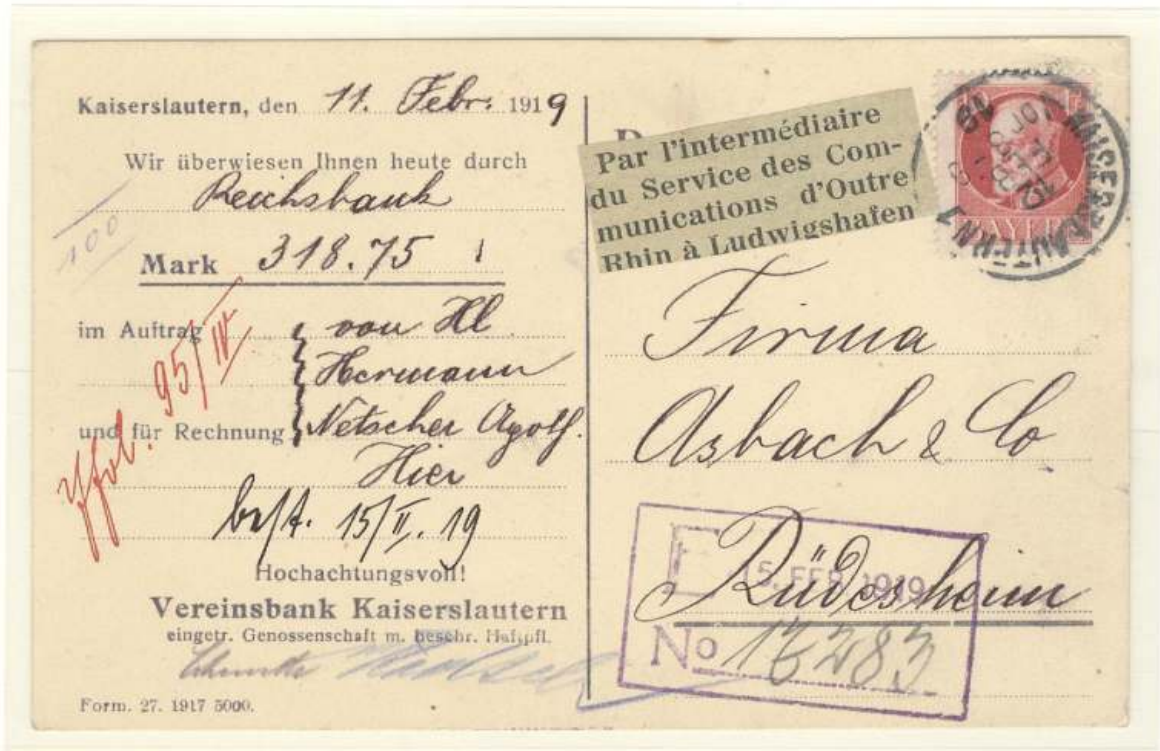 Kaiserslautern, den 11. Febr. 1919
Wir überwiesen Ihnen heute durch
Reichsbank
100
Mark 318.75
im Auftrag von Hl
Hermann
95/IV
und für Rechnung Netscher
Hier
15/II. 19
Hochachtungsvoll!
Vereinsbank Kaiserslautern
eingetr. Genossenschaft m. beschr. Haftpfl.
Form. 27. 1917 5000.
Par l'intermédiaire
du Service des Com-
munications d'Outre
Rhin à Ludwigshafen
KAISERSLAUTERN 1
BAYERN
Firma
Asbach & Co
Rüdesheim
E 15. FEB. 1919
No 17283